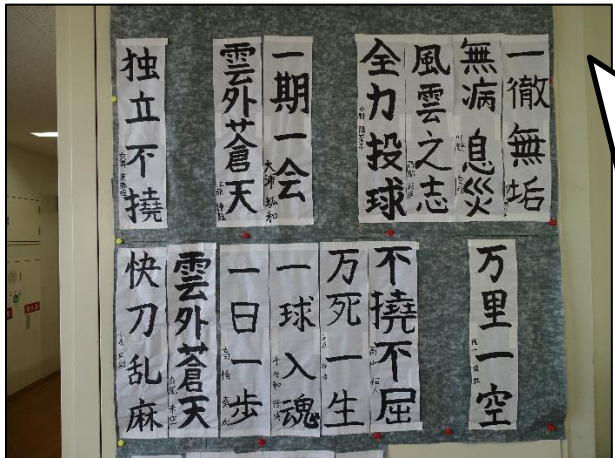 一徹無垢
無病息災
風雲之志
全力投球
一期一会
雲外蒼天
独立不撓
万里一空
不撓不屈
万死一生
一球入魂
一日一歩
雲外蒼天
快刀乱麻